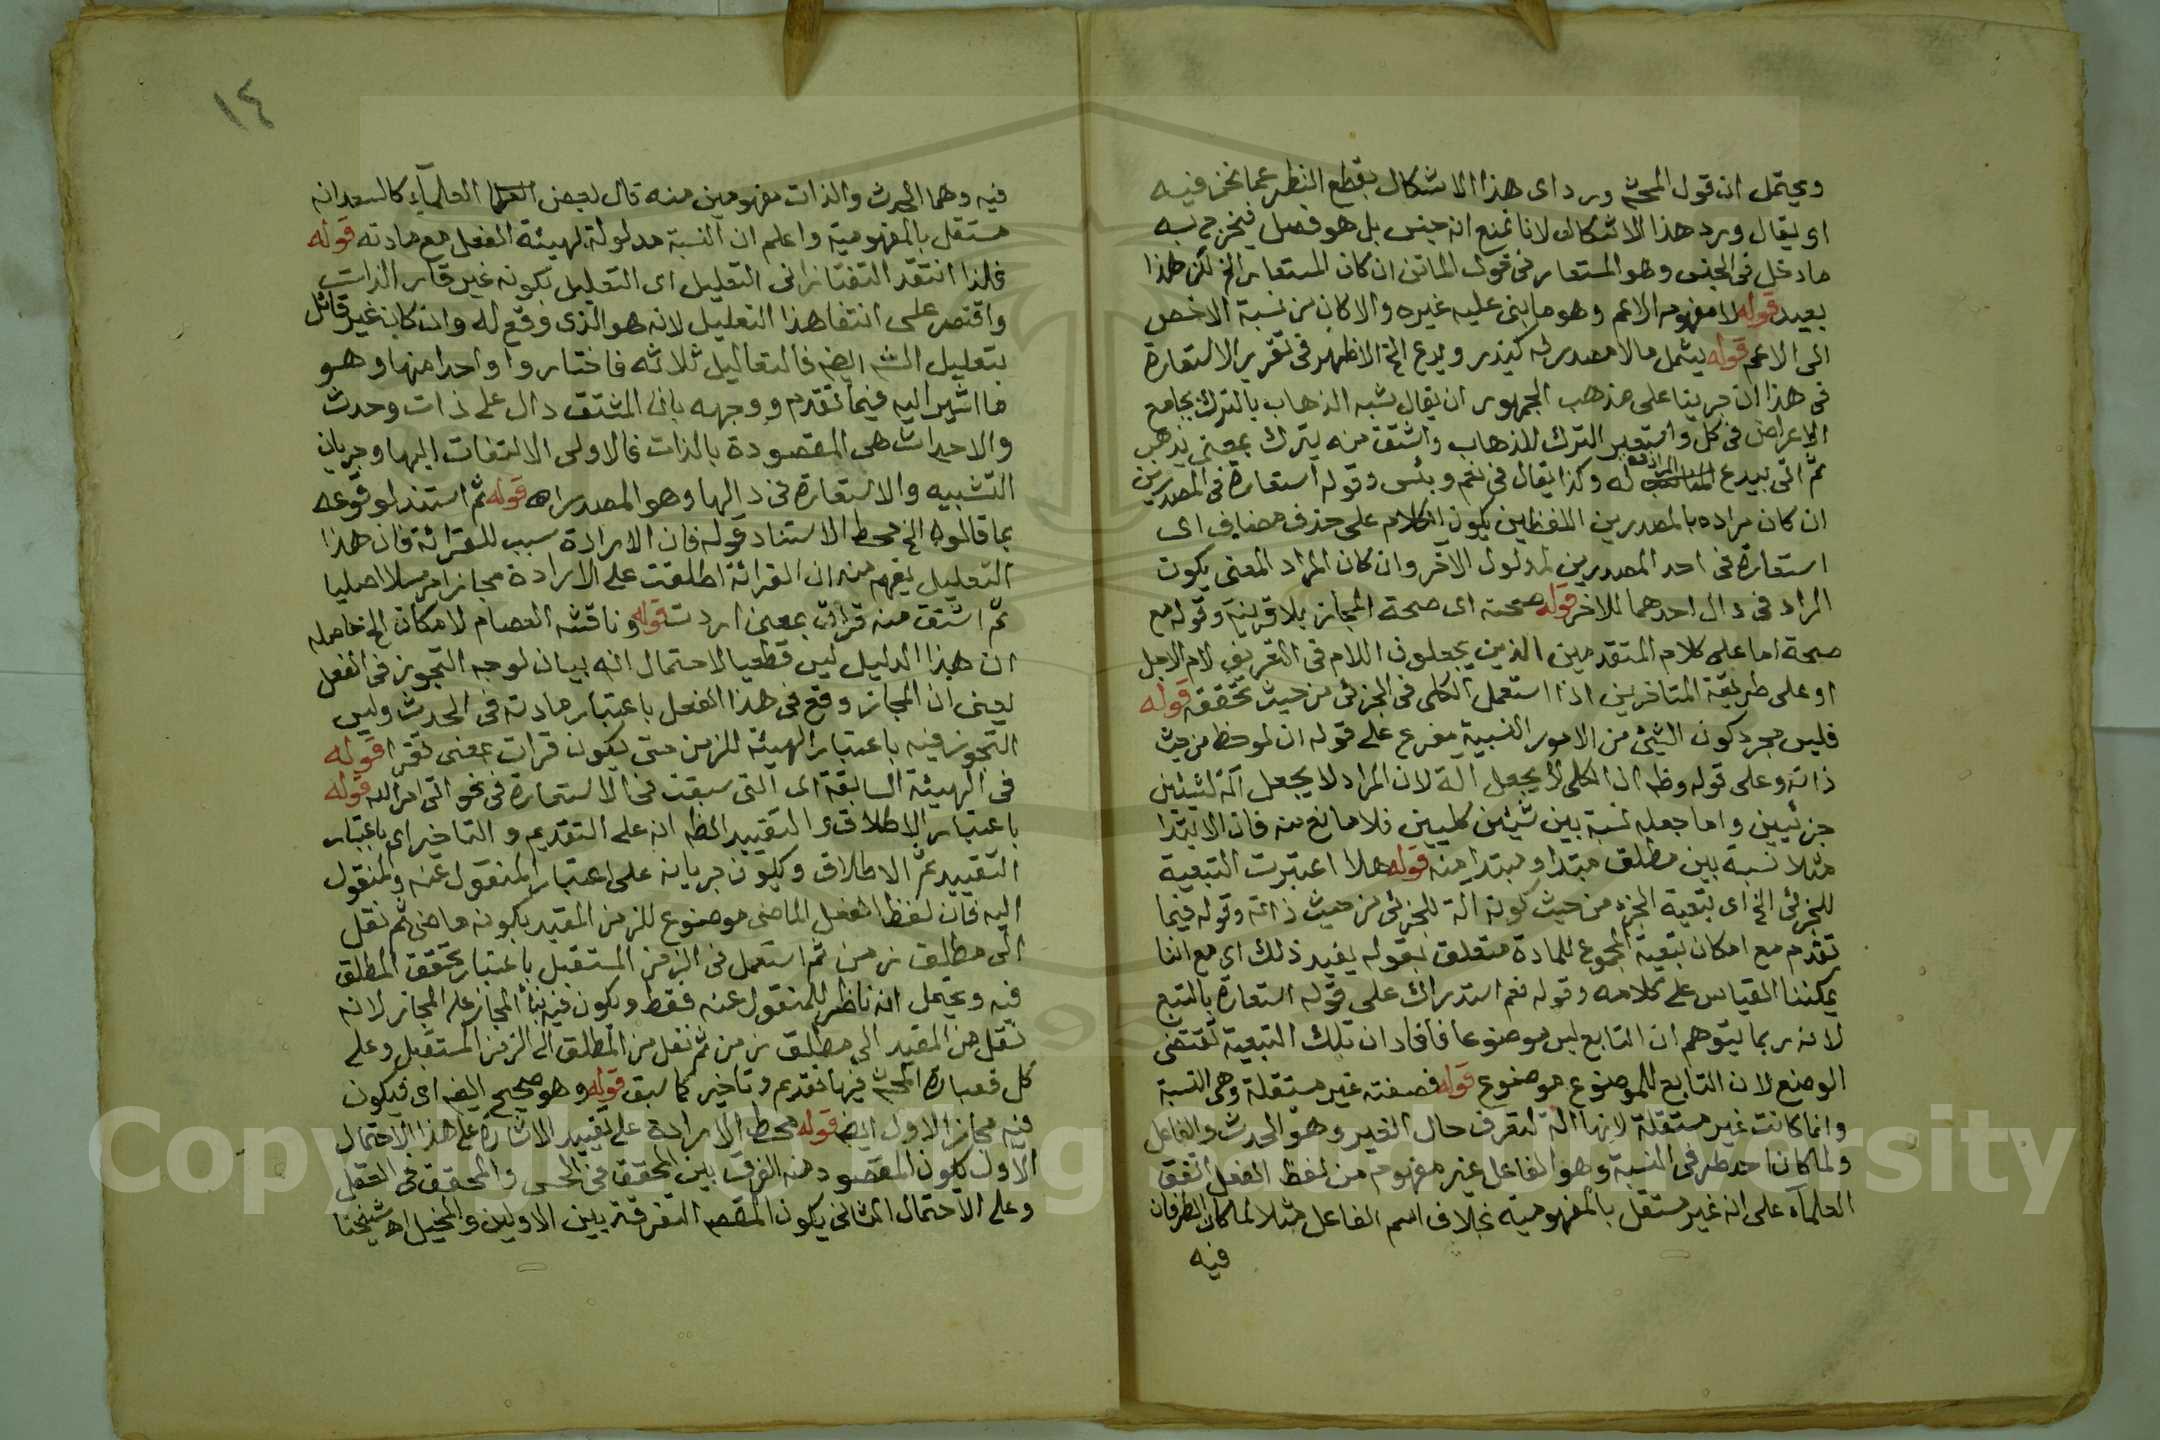 ويحتمل ان قول المحشى ورد اى هذا الاشكال بقطع النظر عما نحن فيه
او يقال ورد هذا الاشكال لانا نمنع انه جنس بل هو فصل فيخرج به
ما دخل فى الجنس وهو المستعار فى قول الماتن ان كان المستعار الخ لكن هذا
بعيد قوله لا مفهوم الاعم وهو ما بنى عليه غيره والا كان من نسبة الاخص
الى الاعم قوله يشمل مالا مصدر له كيذر ويدع الخ الاظهر فى تقرير الاستعارة
فى هذا ان جرينا على مذهب الجمهور ان يقال شبه الذهاب بالترك بجامع
الاعراض فى كل واستعير الترك للذهاب واشتق منه يترك بمعنى يذهب
ثم اتى بيدع المرادف له وكذا يقال فى نعم وبئس وقوله استعارة فى المصدرين
ان كان مراده بالمصدرين اللفظين يكون الكلام على حذف مضاف اى
استعارة فى احد المصدرين لمدلول الاخر وان كان المراد المعنى يكون
المراد فى دال احدهما للاخر قوله صحته اى صحة المجاز بلا قرينة وقوله مع
صحة اما على كلام المتقدمين الذين يجعلون اللام فى التعريف لام الاجل
او على طريقة المتاخرين اذا استعمل الكلى فى الجزئى من حيث تحققه قوله
فليس مجرد كون الشيئ من الامور النسبية مفرع على قوله ان لوحظ من حيث
ذاته وعلى قوله وظه ان الكلى لا يجعل الة لان المراد لا يجعل آلة لشيئين
جزئيين واما جعله نسبة بين شيئين كليين فلا مانع منه فان الابتدا
مثلا نسبة بين مطلق مبتدا ومبتدا منه قوله هلا اعتبرت التبعية
للجزئى الخ اى بتبعية الجزء من حيث كونه الة للجزئى من حيث ذاته وقوله فيما
تقدم مع امكان تبعية المجموع للمادة متعلق بقوله يفيد ذلك اى مع اننا
يمكننا القياس على كلامه وقوله نعم استدراك على قوله استعارة بالتبع
لانه ربما يتوهم ان التابع ليس موضوعا فافاد ان تلك التبعية تقتضى
الوضع لان التابع للموضوع موضوع قوله فصفته غير مستقلة وهى النسبة
وانما كانت غير مستقلة لانها الة لتعرف حال الغير وهو الحدث والفاعل
ولما كان احد طرفى النسبة وهو الفاعل غير مفهوم من لفظ الفعل اتفق
العلماء على انه غير مستقل بالمفهومية بخلاف اسم الفاعل مثلا لما كان الطرفان
فيه
١٤
فيه وهما الحدث والذات مفهومين منه قال بعض العلماء كالسعد انه
مستقل بالمفهومية واعلم ان النسبة مدلولة لهيئة الفعل مع مادته قوله
فلذا انتقد التفتازانى التعليل اى التعليل بكونه غير قار الذات
واقتصر على انتفا هذا التعليل لانه هو الذى وقع له وان كان غير قائل
بتعليل الشم ايضه فالتعاليل ثلاثه فاختاروا واحدا منها وهو
ما اشير اليه فيما تقدم ووجهه بان المشتق دال على ذات وحدث
والاحداث هى المقصودة بالذات فالاولى الالتفات اليها وجريان
التشبيه والاستعارة فى دالها وهو المصدر اهـ قوله ثم استند لوقوعه
بما قالوه الخ محط الاستناد قوله فان الارادة سبب للقرائة فان هذا
التعليل يفهم منه ان القرائة اطلقت على الارادة مجازا مرسلا اصليا
ثم اشتق منه قرات بمعنى اردت قوله وناقشه العصام لامكان الخ حاصله
ان هذا الدليل ليس قطعيا لاحتمال انه بيان لوجه التجوز فى الفعل
يعنى ان المجاز وقع فى هذا الفعل باعتبار مادته فى الحدث وليس
التجوز فيه باعتبار الهيئة للزمن حتى يكون قرات بمعنى تقرا قوله
فى الهيئة السابقة اى التى سبقت فى الاستعارة فى نحو اتى امر الله قوله
باعتبار الاطلاق والتقييد الظه انه على التقديم والتاخير اى باعتبار
التقييد ثم الاطلاق ويكون جريانه على اعتبار المنقول عنه والمنقول
اليه فان لفظ الفعل الماضى موضوع للزمن المقيد بكونه ماضى ثم نقل
الى مطلق زمن ثم استعمل فى الزمن المستقبل باعتبار تحقق المطلق
فيه ويحتمل انه ناظر للمنقول عنه فقط ويكون فيه بناء المجاز على المجاز لانه
نقل من المقيد الى مطلق زمن ثم نقل من المطلق الى الزمن المستقبل وعلى
كل فعبارة المحشى فيها تقديم وتاخير كما سبق قوله وهو صحيح ايضه اى فيكون
فيه مجاز الاول ايضه قوله محط الارادة على تقييد الاشارة على هذا الاحتمال
الاول يكون المقصود منه الفرق بين المحقق فى الحس والمحقق فى العقل
وعلى الاحتمال الثانى يكون المقصه التفرقة بين الاولين والمخيل اهـ شيخنا
Copyright © King Saud University